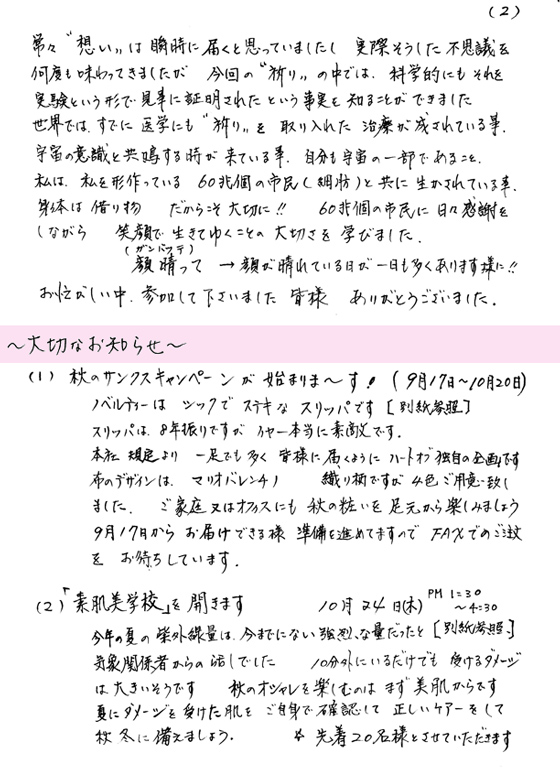 (2)
常々"想い"は 瞬時に届くと思っていましたし 実際そうした不思議を
何度も味わってきましたが 今回の"祈り"の中では、科学的にもそれを
実験という形で見事に証明されたという事実を知ることができました
世界では、すでに医学にも"祈り"を 取り入れた 治療が成されている事、
宇宙の意識と共鳴する時が来ている事、自分も宇宙の一部であること、
私は、私を形作っている 60兆個の市民(細胞)と共に 生かされている事、
身体は借り物 だからこそ大切に!! 60兆個の市民に日々感謝を
しながら 笑顔で生きてゆくことの大切さを学びました。
(ガンバッテ)
顔晴って → 顔が晴れている日が一日も多くあります様に!!
お忙がしい中、参加して下さいました 皆様 ありがとうございました。
〜大切なお知らせ〜
(1) 秋のサンクスキャンペーンが始まりま〜す! (9月17日〜10月20日)
ノベルティーは シックでステキな スリッパです [別紙参照]
スリッパは、8年振りですが イヤー本当に素敵です。
本社規定より 一足でも多く 皆様に届くように ハートオブ独自の企画です
布のデザインは、マリオバレンチノ 織り柄ですが 4色ご用意致し
ました。 ご家庭又はオフィスにも 秋の粧いを足元から楽しみましょう
9月17日から お届けできる様 準備を進めてますので FAXでのご注文
を お待ちしています。
(2)「素肌美学校」を開きます 10月24日(木) PM 1=30
〜4=30
今年の夏の紫外線量は、今までにない強烈な量だったと [別紙参照]
気象関係者からの話しでした 10分外にいるだけでも 受けるダメージ
は大きいそうです 秋のオシャレを楽しむのは まず 美肌からです
夏にダメージを受けた肌を ご自身で確認して 正しいケアーをして
秋冬に備えましょう。 * 先着20名様とさせていただきます